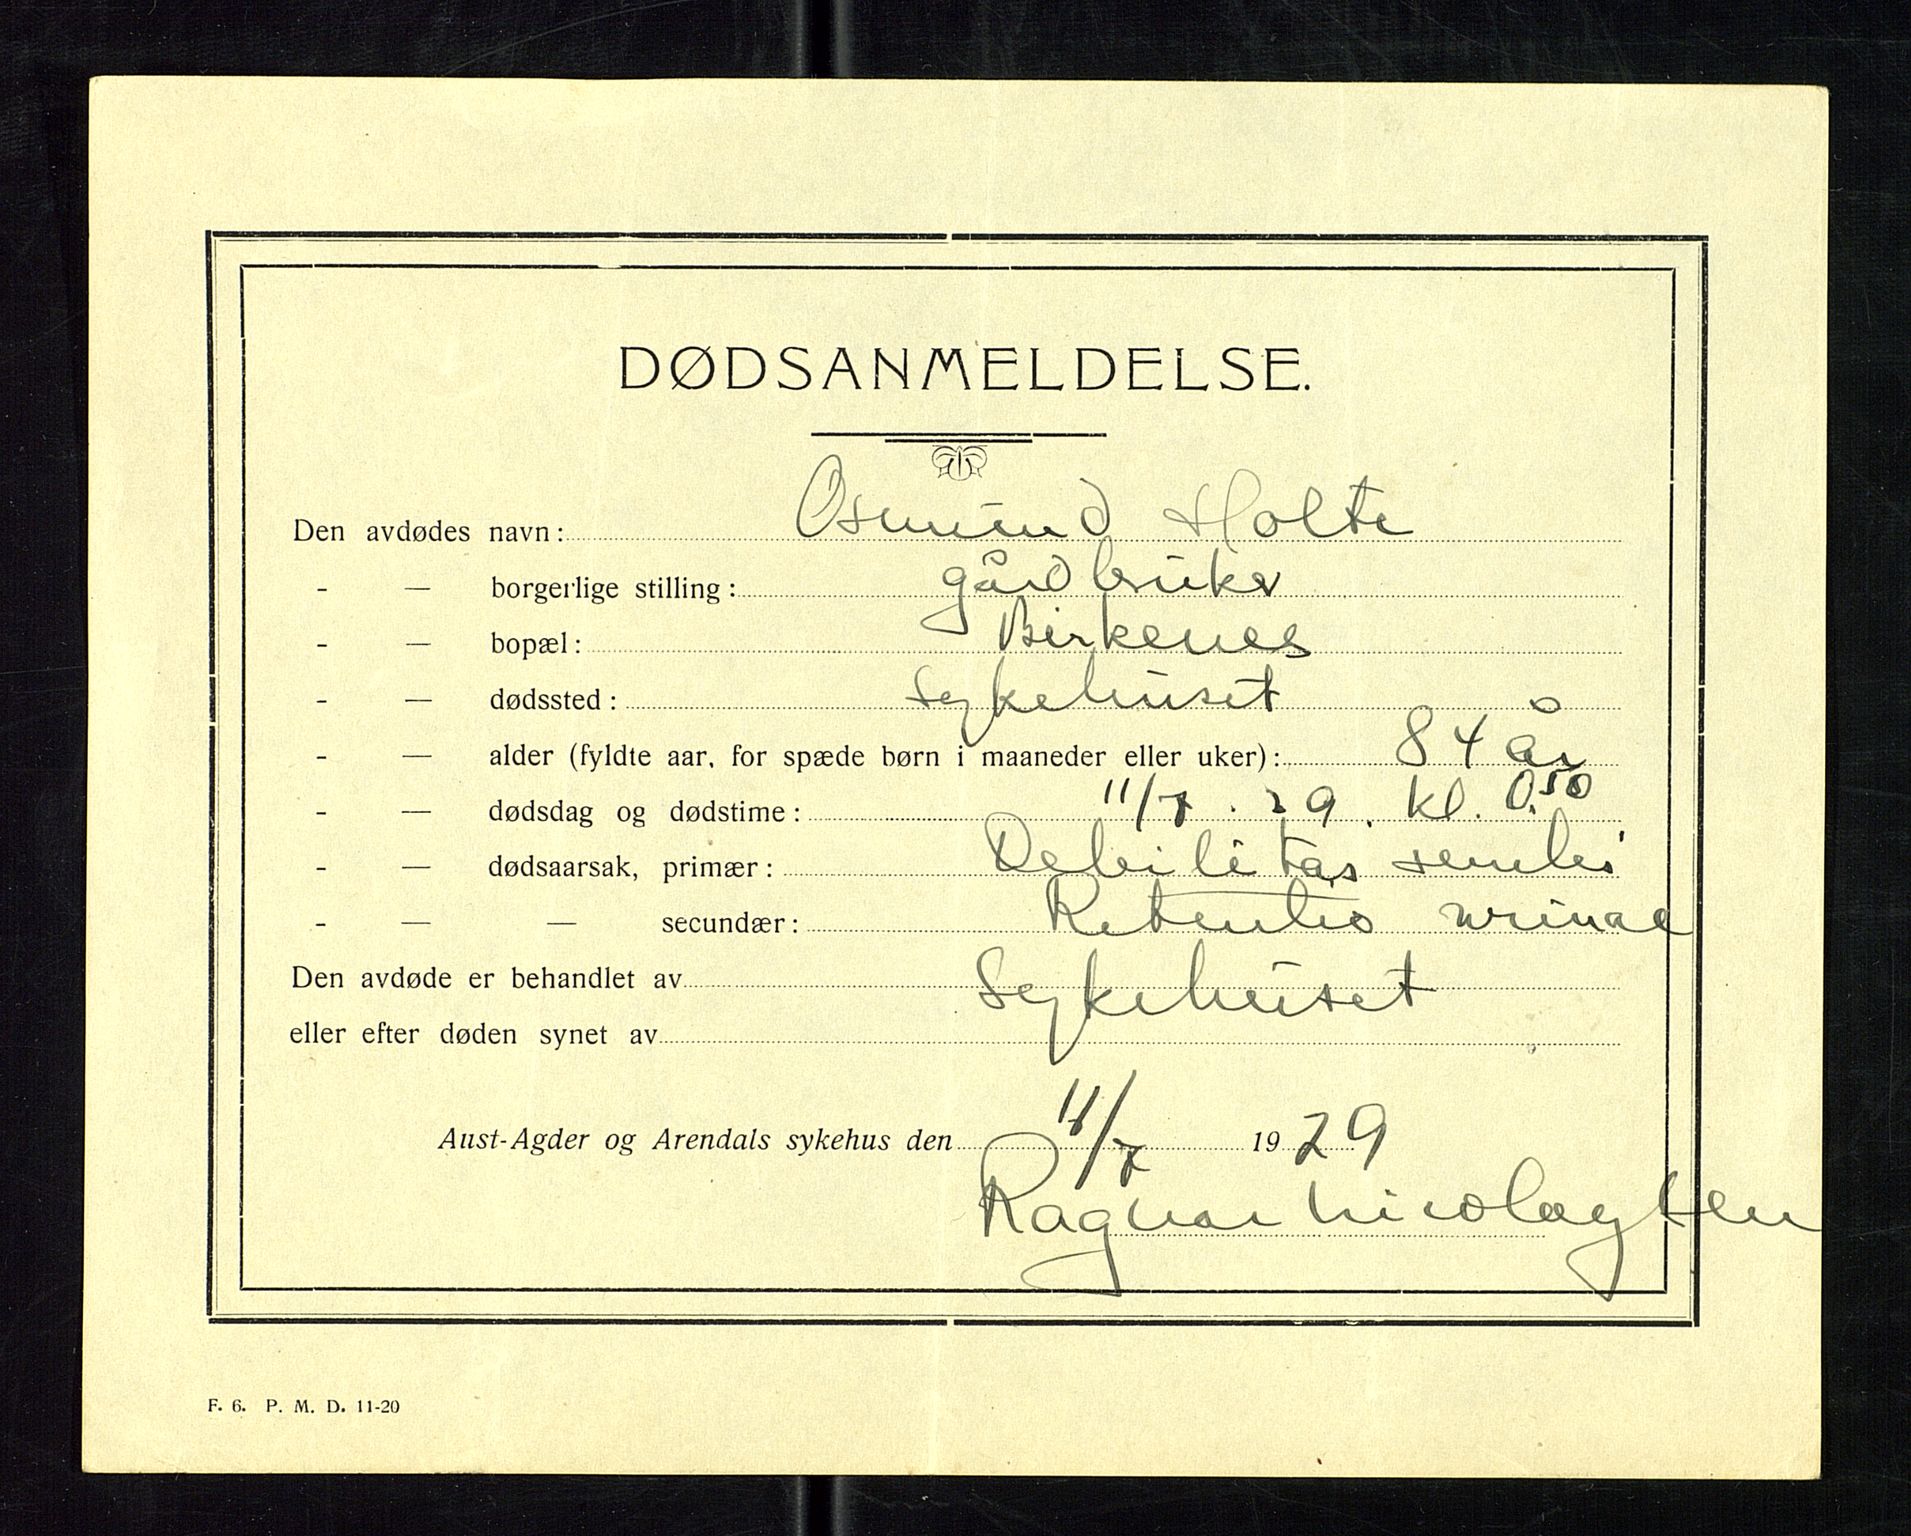 DØDSANMELDELSE.
Den avdødes navn: Osmund Holte
- — borgerlige stilling: gårdbruker
- — bopæl: Birkenes
- — dødssted: sykehuset
- — alder (fyldte aar, for spæde børn i maaneder eller uker): 84 år
- — dødsdag og dødstime: 11/7.29. kl. 0.50
- — dødsaarsak, primær: Debilitas senilis
- — — secundær: Retentio urinae
Den avdøde er behandlet av Sykehuset
eller efter døden synet av
Aust-Agder og Arendals sykehus den 11/7 1929
Ragnar Nicolaysen
F. 6. P. M. D. 11-20